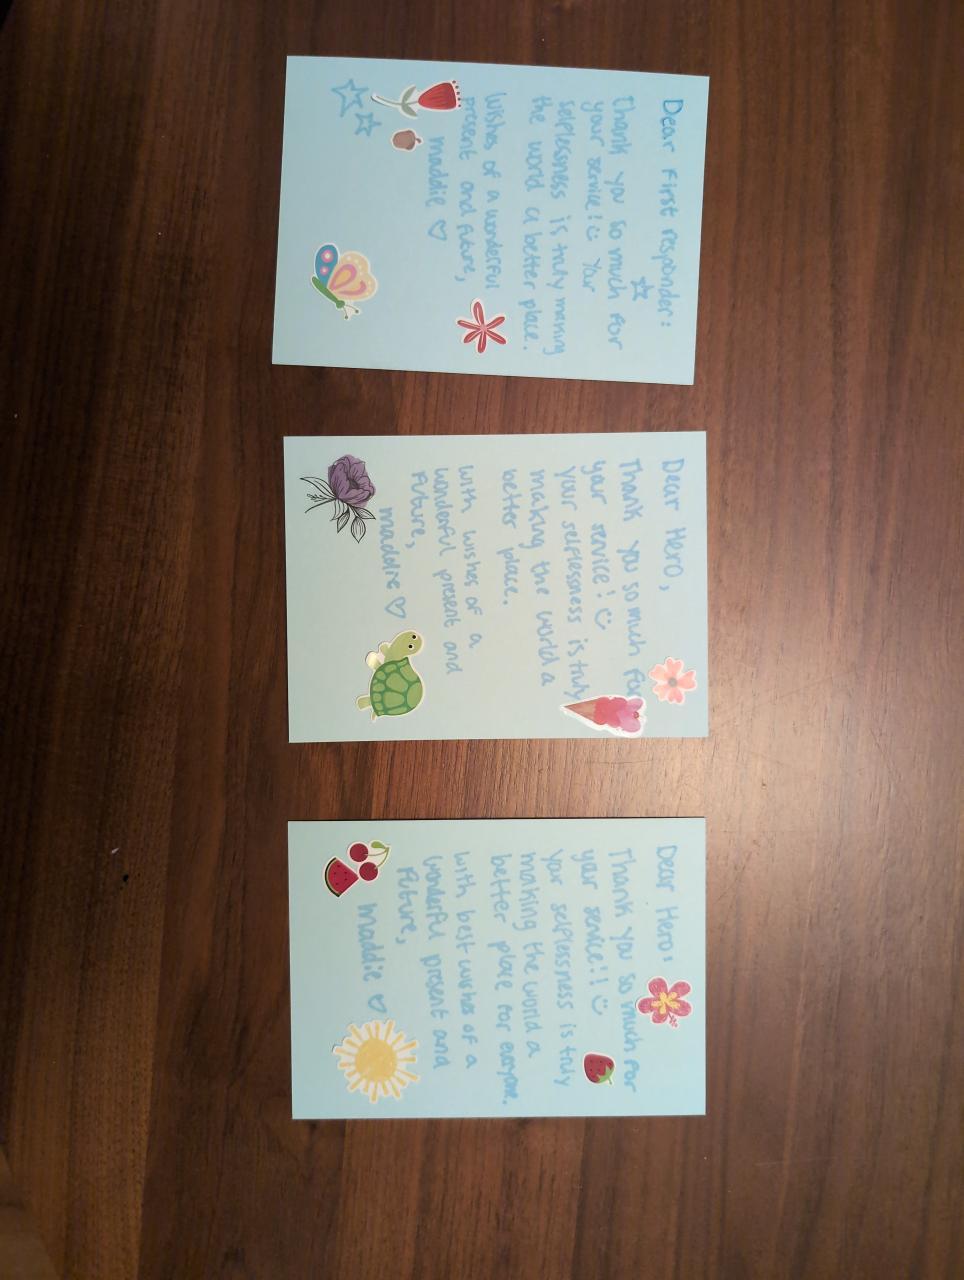 Dear First responder:
Thank you so much for
your service! Your
selflessness is truly making
the world a better place.
Wishes of a wonderful
present and future,
maddie
Dear Hero,
Thank you so much for
your service!
your selflessness is truly
making the world a
better place.
with wishes of a
wonderful present and
Future,
maddie
Dear Hero:
Thank you so much For
your service!!
your selflessness is truly
making the world a
better place for everyone.
with best wishes of a
wonderful present and
Future,
maddie